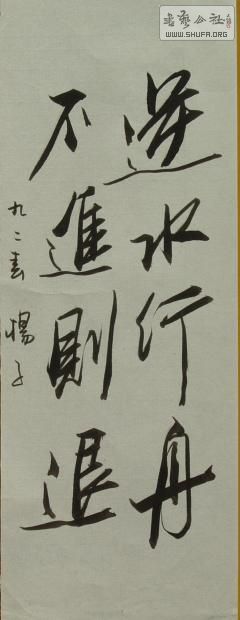 逆水行舟
不進則退
九二春 楊子
書藝公社
WWW.SHUFA.ORG